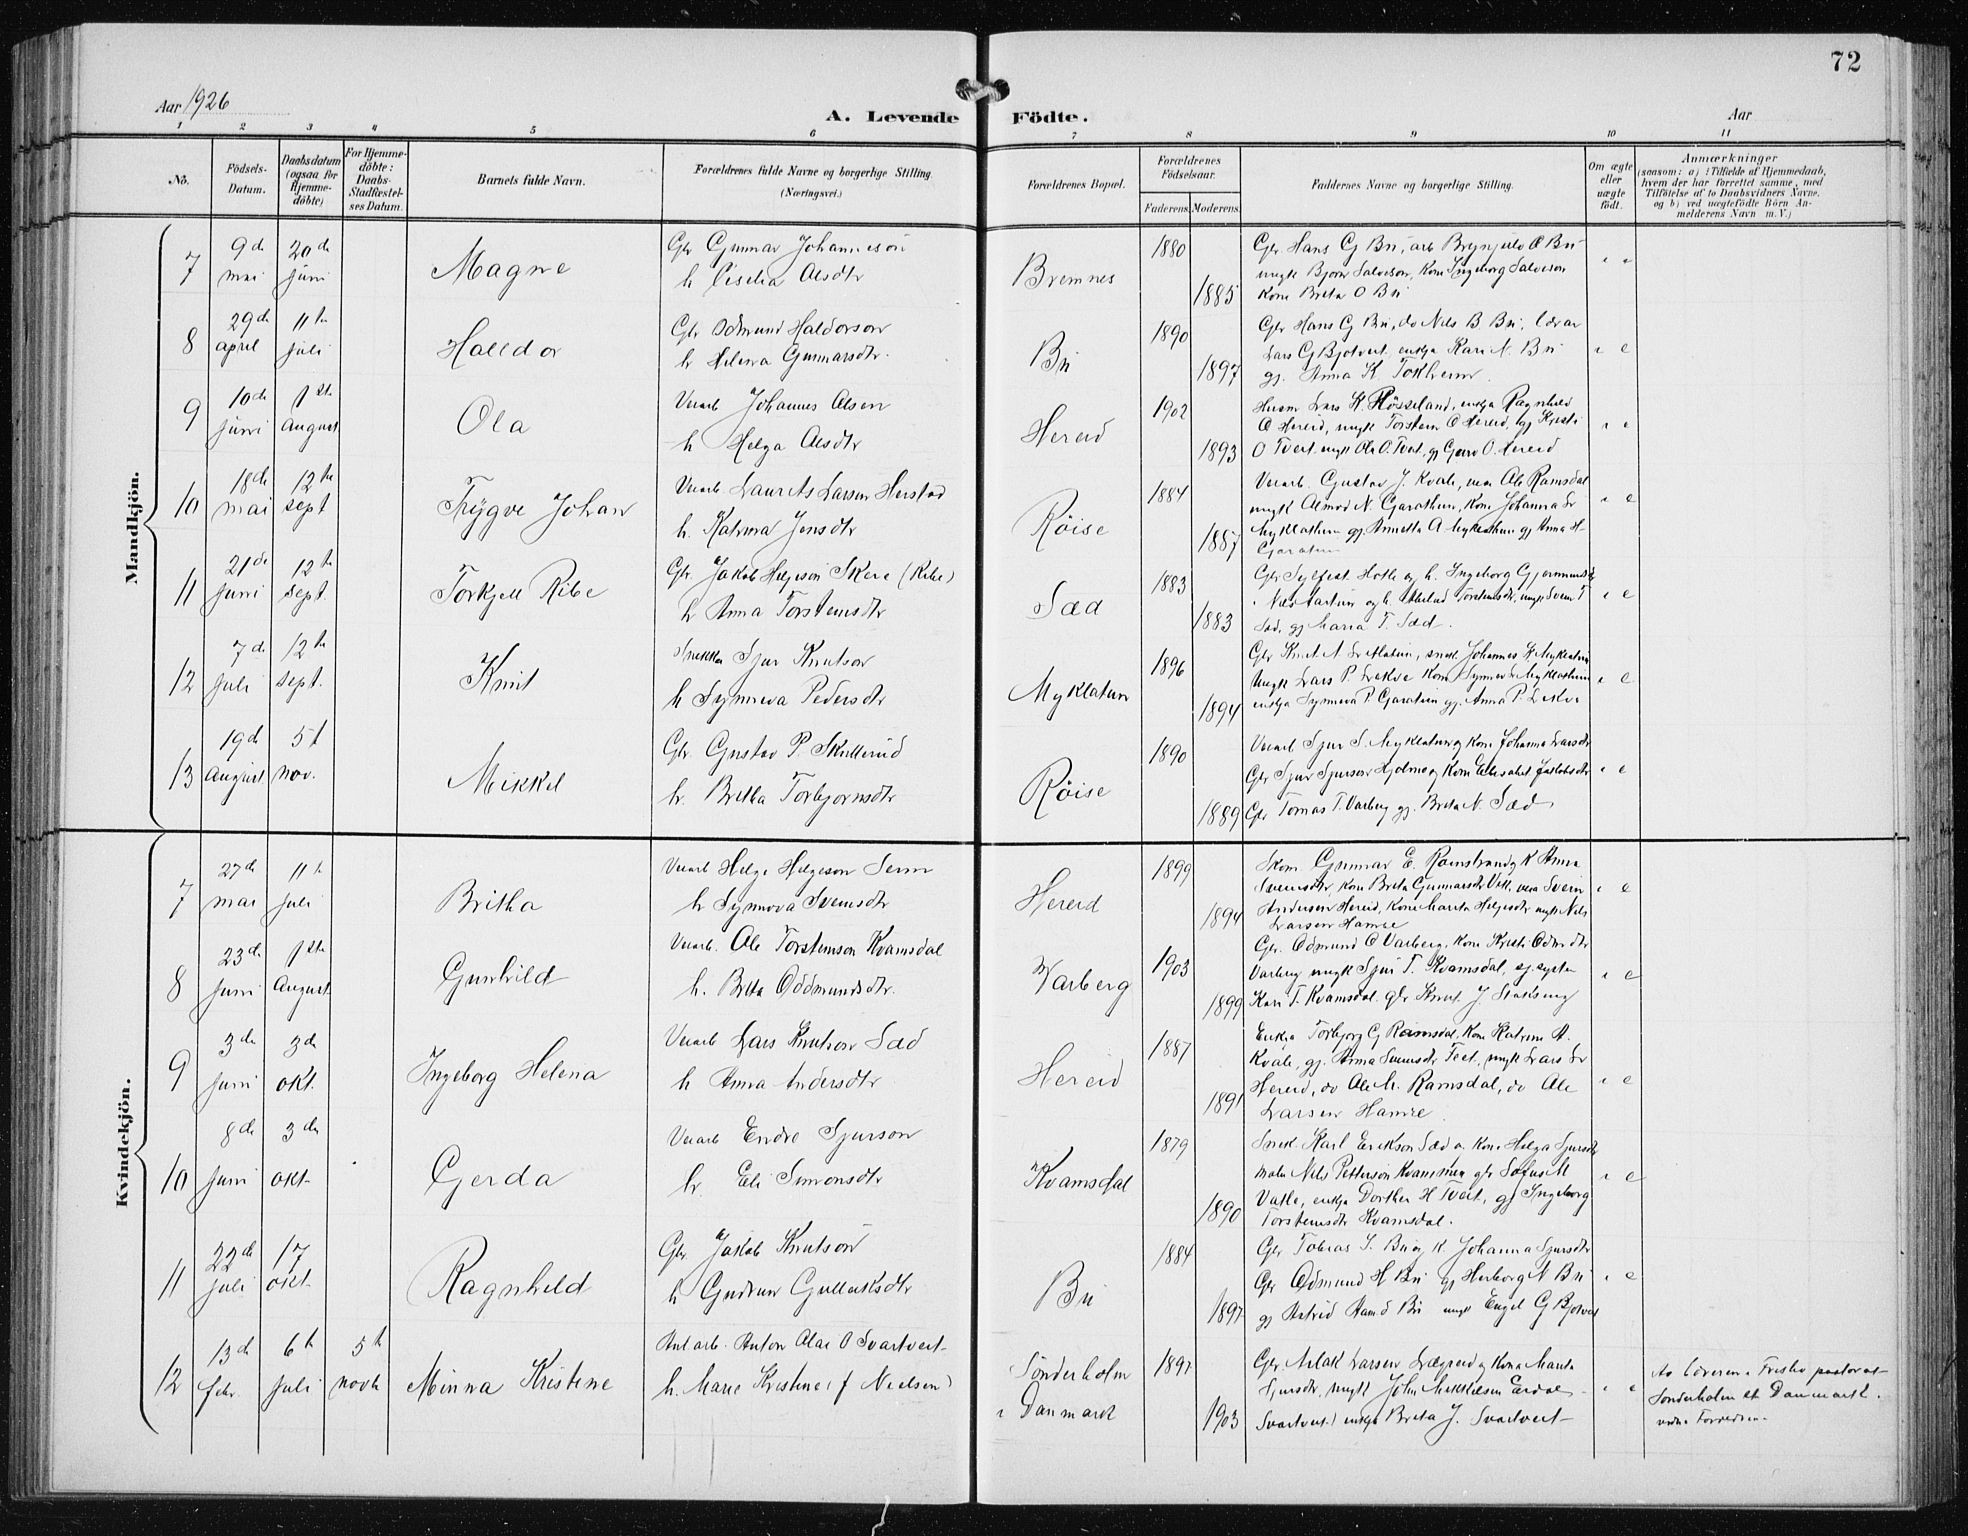 72
Aar 1926
A. Levende Födte.
Aar
1 2 3 4 5 6 7 8 9 10 11
No.
Födsels-Datum.
Daabsdatum (ogsaa for Hjemmedöbte)
For Hjemmedöbte: Daabs-Stadfæstelses Datum.
Barnets fulde Navn.
Forældrenes fulde Navne og borgerlige Stilling. (Næringsvei.)
Forældrenes Bopæl.
Forældrenes Födselsaar.
Faderens. Moderens.
Faddernes Navne og borgerlige Stilling.
Om ægte eller uægte födt.
Anmærkninger
(saasom: a) i Tilfælde af Hjemmedaab, hvem der har forrettet samme, med Tilföielse af to Daabsvidners Navne, og b) ved uægtefödte Börn Anmelderens Navn m. V.)
Mandkjön.
7 9de mai 20de juni Magne
Gbr Gunnar Johanneson
h Ciselia Olsdtr
Bremnes 1880 1885
Gbr Hans G Bu, arb Brynjulv O Bu
ungk Bjorn Salveson, Kone Ingeborg Salveson
Kone Breta O Bu
8 29de april 11te juli Halldor
Gbr Odmund Haldorson
h Helena Gunnarsdtr.
Bu 1890 1897
Gbr Hans G Bu, do Nils B Bu, lærar
Lars G Bjotveit enkja Kari N. Bu
gj. Anna K Tokheim
9 10de juni 1ste August Ola
Veiarb Johannes Olson
h Helga Olsdtr
Hereid 1902 1893
Husm Lars K. Rösseland, enkja Ragnhild
O Hereid, ungk Torstein O Hereid, gj Kristi
O Tveit ungk Ola O. Tveit, gj Guro O. Hereid
10 18de mai 12te sept Trygve Johan
Veiarb. Laurits Larsen Herstad
h. Katrina Jensdtr
Röise 1884 1887
Veiarb. Gustav J. Kvale, Ole Ramsdal
ungk Almod N. Garathun, Kone Johanna
Myklathun gj Annetta A Myklathun gj Anna H
Garatun
11 21de juni 12te sept. Torkjell Ribe
Gbr. Jakob Helgeson Skere (Ribe)
h Anna Torsteinsdtr
Sæd 1883 1883
Gbr Sylfest Hotle og h. Ingeborg Gjermundsdtr
og h. Torsteinsdtr, ungk Svein T
Sæd, gj Maria T. Sæd.
12 7de juli 12te sept. Knut
Snikkar Sjur Knutson
h Synneva Pedersdtr
Myklatun 1896 1894
snik Johannes K Myklatun
Ungk Lars P. Lekve Kone Synneva Myklathun
enkja Synneva P. Garatun gj. Anna P Lekve
13 19de August 5t nov. Mikkel
Gbr. Gustav P. Skullerud
h. Britha Torbjornsdtr
Röise 1890 1889
Veiarb Sjur S. Myklatun og Kone Johanna Larsdtr
Gbr Sjur Sjurson Hjolmo og Kone Elisabet Jakobsdtr
Gbr Tomas T. Varberg gj. Breta N. Sæd
Kvindekjön.
7 27de mai 11te juli Britha
Veiarb Helge Helgeson Seim
h Synnova Sveinsdtr
Hereid 1899 1894
Skom. Gunnar E. Rönstrand og K Anna
Sveinsdtr Kone Breta Gunnarsdtr Vik, Svein
Anderson Hereid, Kone Marita Helgesdtr ungk Nils
Larsen Hamre
8 23de juni 1ste August Gunhild
Veiarb. Ole Torsteinson Kvamsdal
h. Brita Oddmundsdtr.
Varberg 1903 1899
Gbr. Odmund O Varberg, Kone Kristi Odmdtr
Varberg ungk Sjur T. Kvamsdal, sj.syster
Kari T. Kvamsdal. gbr Knut J
9 3de juni 3de okt. Ingeborg Helena
Veiarb Lars Knutson Sæd
h Anna Andersdtr
Hereid 1887 1891
Enkja Torbjorg G Ramsdal, Kone Katrina A.
Kvale, gj. Anna Sveinsdtr Feet, ungk Lars
Hereid, do Ole M. Ramsdal, do Ole
Larsen Hamre
10 8de juni 3de okt. Gerda
Veiarb Endre Sjurson
h. Eli Simonsdtr
Kvamsdal 1879 1890
Snik. Karl Erikson Sæd og Kone Helga Sjursdtr
malar Nils Petterson Kvammen gbr Sofus M
Valle, enkja Dorthea H Tveit, gj Ingeborg
Torsteinsdtr Kvamsdal.
11 22de juli 17 okt Ragnhild
Gbr. Jakob Knutson
h Gudrun Gulleiksdtr
Bu 1884 1897
Gbr Tobias S. Bu og K. Johanna Sjursdtr
Gbr Odmund H Bu gj Herborg N Bu
gj Astrid Bu ungk Engel G Bjotveit
12 13de febr. 6t juli 5t novbr Minna Kristine
Anl arb. Anton Olai O Svartveit
h. Marie Kristine (f Nielsen)
Sönderholm
i Danmark 1897 1903
Gbr. Aslak Larsen Lægreid og Kone Marita
Sjursdtr, ungk John Mikkelsen Eidal
Svartveit enkja Breta J. Svartveit
pastorat
Sonderholm et Danmark.